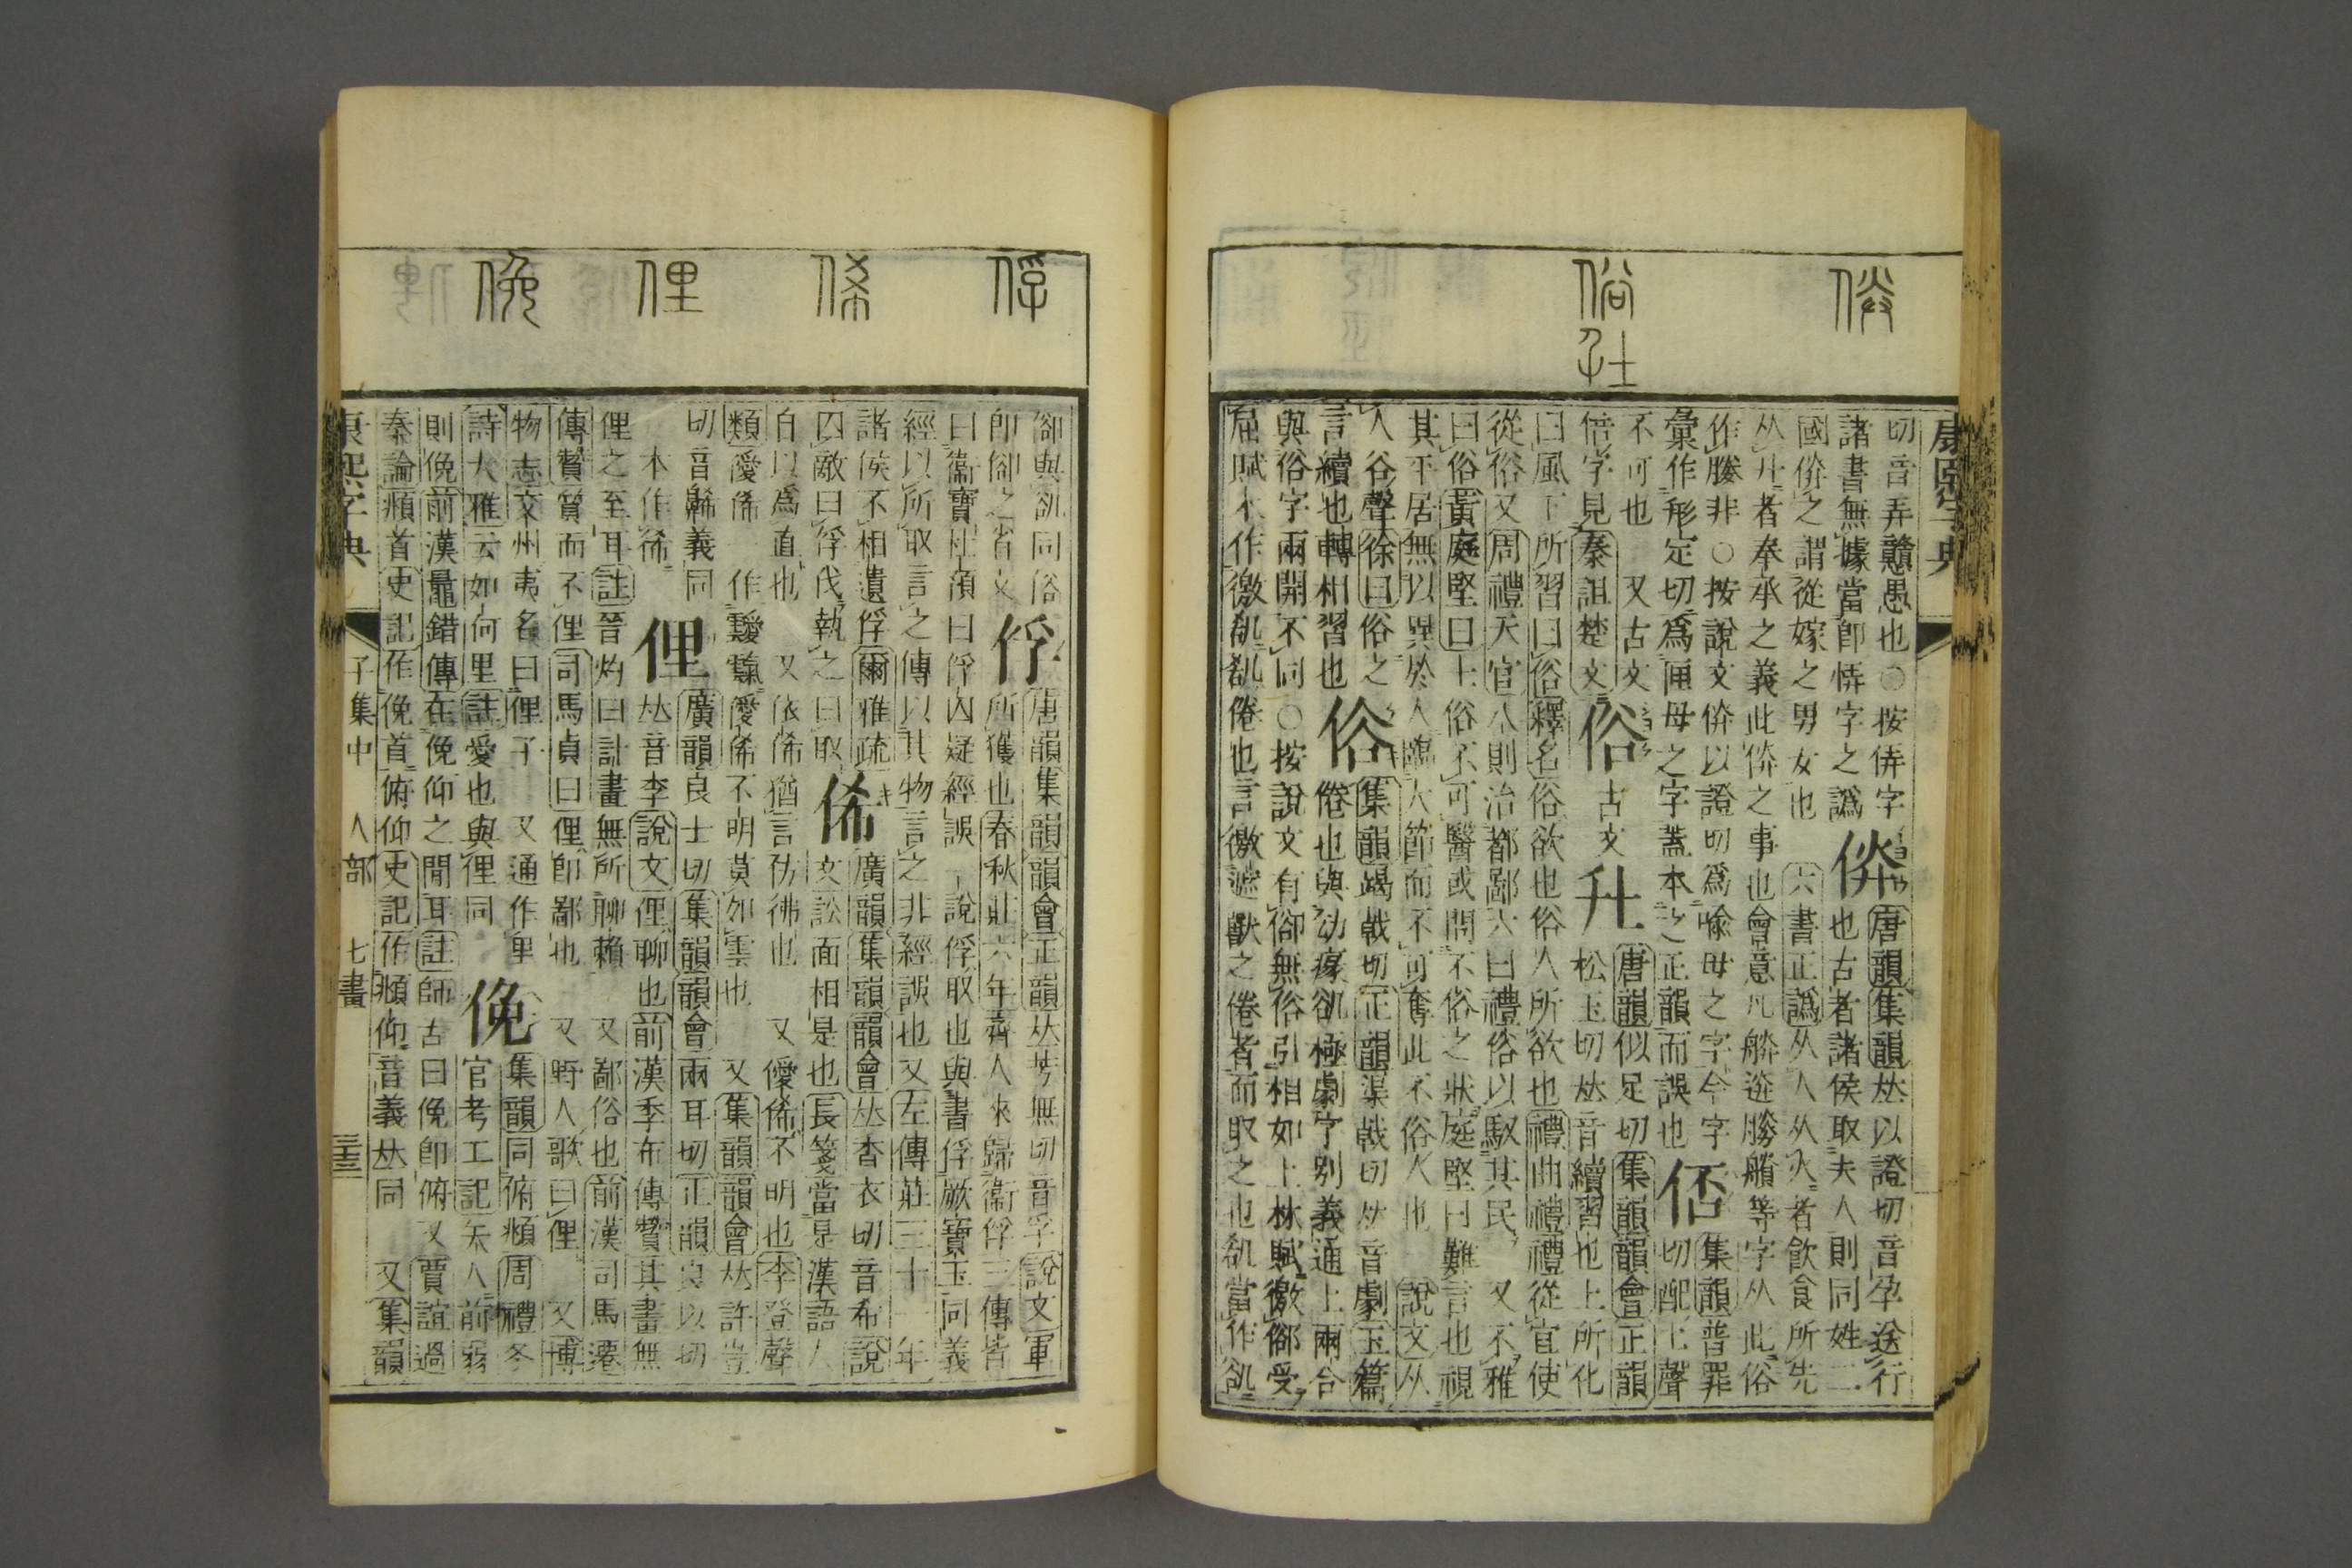 康熙字典
俗
切音弄戇愚也○按俦字 唐韻集韻𠀤以證切音孕送行
諸書無據當卽㤝字之譌 㑞 也古者諸侯取夫人則同姓二
國㑞之謂從嫁之男女也 六書正譌从人从灷者飮食所先
从廾者奉承之義此㑞之事也會意凡等字从此俗
作媵非○按說文㑞以證切爲喻母之字今字 集韻普罪
彙作形定切爲匣母之字蓋本之正韻而誤也 俖 切配上聲
不可也 又古文 唐韻似足切集韻韻會正韻
倍字見秦詛楚文 俗 古文 松玉切𠀤音續習也上所化
曰風下所習曰俗釋名俗欲也俗人所欲也禮曲禮禮從宜使
從俗又周禮天官八則治都鄙六曰禮俗以馭其民 又不雅
曰俗黃庭堅曰士俗不可醫或問不俗之狀庭堅曰難言也視
其平居無以異於人臨大節而不可奪此不俗人也 說文从
人谷聲徐曰俗之 集韻竭戟切正韻渠戟切𠀤音劇玉篇
言續也轉相習也 㕁 倦也與㰟㾡㕁極劇字別義通上兩合
與俗字兩開不同○按說文有㕁無俗引相如上林賦徼㕁受
屈賦本作徼㕁倦也言徼遮獸之倦者而取之也當作
俘 俙 俚 俛
卻與同俗 唐韻集韻韻會正韻𠀤芳無切音孚說文軍
卽㕁之省文 俘 所獲也春秋莊六年齊人來歸衞俘三傳皆
曰衞寶杜預曰俘囚疑經誤一說俘取也與書俘厥寶玉同義
經以所取言之傳以其物言之非經誤也又左傳莊三十一年
諸侯不相遺俘爾雅疏 廣韻集韻韻會𠀤香衣切音希說
囚敵曰俘伐執之曰取 俙 文訟面相是也長箋當是漢語人
自以爲直也 又依俙猶言彷彿也 又僾俙不明也李登聲
類僾俙一作靉靅僾俙不明莫如雲也 又集韻韻會𠀤許豈
切音豨義同 廣韻良士切集韻韻會兩耳切正韻良以切
本作㣟 俚 𠀤音李說文俚聊也前漢季布傳贊其畫無
俚之至耳註晉灼曰計畫無所聊賴 又鄙俗也前漢司馬遷
傳贊質而不俚司馬貞曰俚卽鄙也 又野人歌曰俚 又博
物志交州夷名曰俚子 又通作里 集韻同俯頫周禮冬
詩大雅云如何里註愛也與俚同 俛 官考工記矢人前弱
則俛前漢鼂錯傳在俛仰之閒耳註師古曰俛卽俯又賈誼過
秦論頫首史記作俛首俯仰史記作頫仰音義𠀤同 又集韻
康熙字典 子集中 人部 七畫